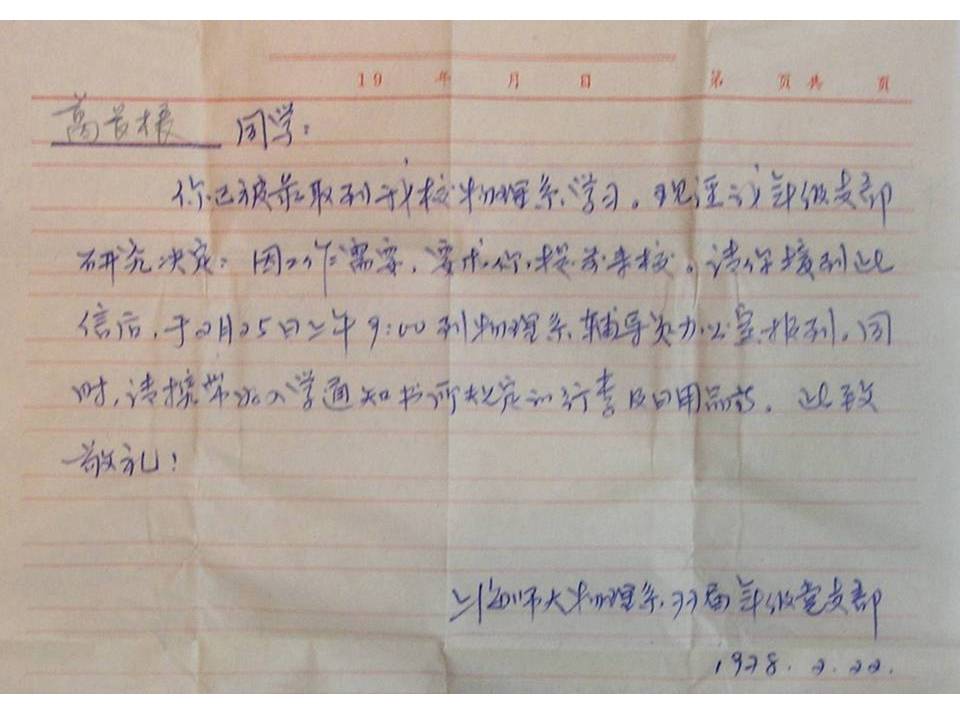 19 年 月 日 第 页共 页
同学：
你已被录取到我校物理系学习。现经我年级支部
研究决定：因工作需要，要求你提前来校。请你接到此
信后，于2月25日上午9:00到物理系辅导员办公室报到。同
时，请携带入学通知书所规定的行李及日用品等。此致
敬礼！
上海师大物理系77届年级党支部
1978.2.22.